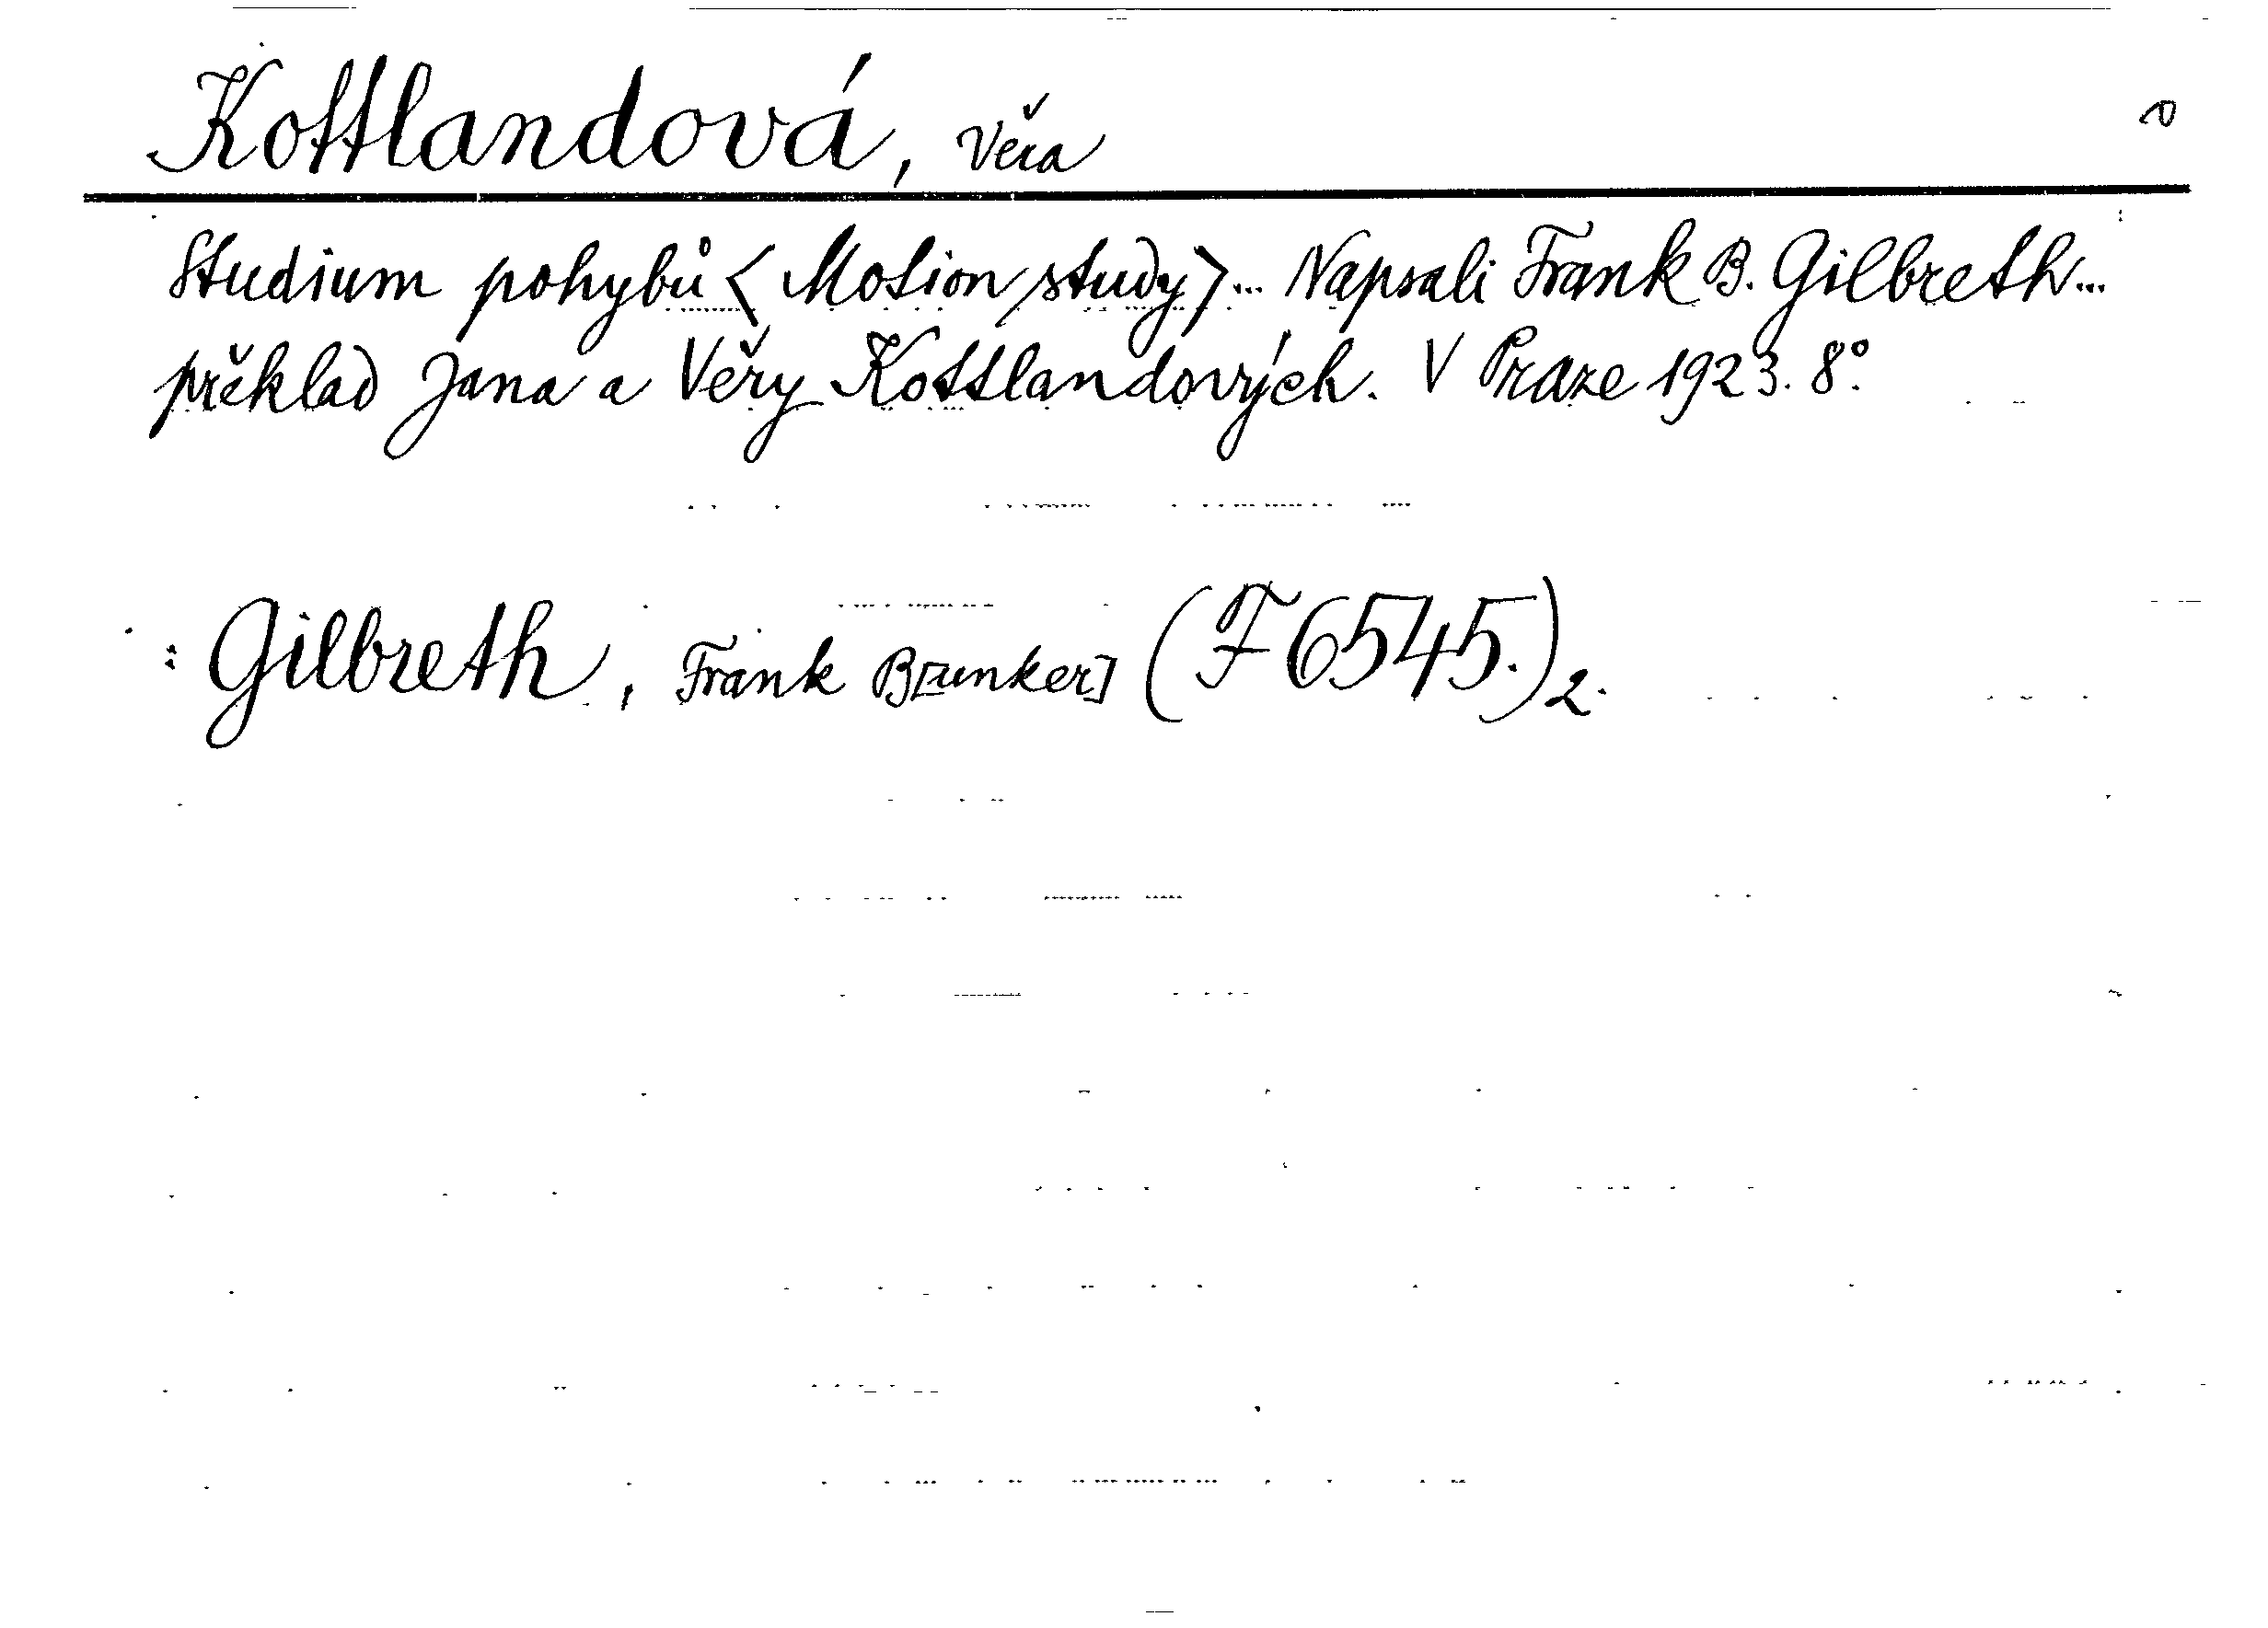 Kottlandová, Věra
Studium pohybů < Motion study > ... Napsali Frank B. Gilbreth ...
překlad Jana a Věry Kottlandových. V Praze 1923. 8°.
: Gilbreth, Frank B[unker] (F 6545.) 2.